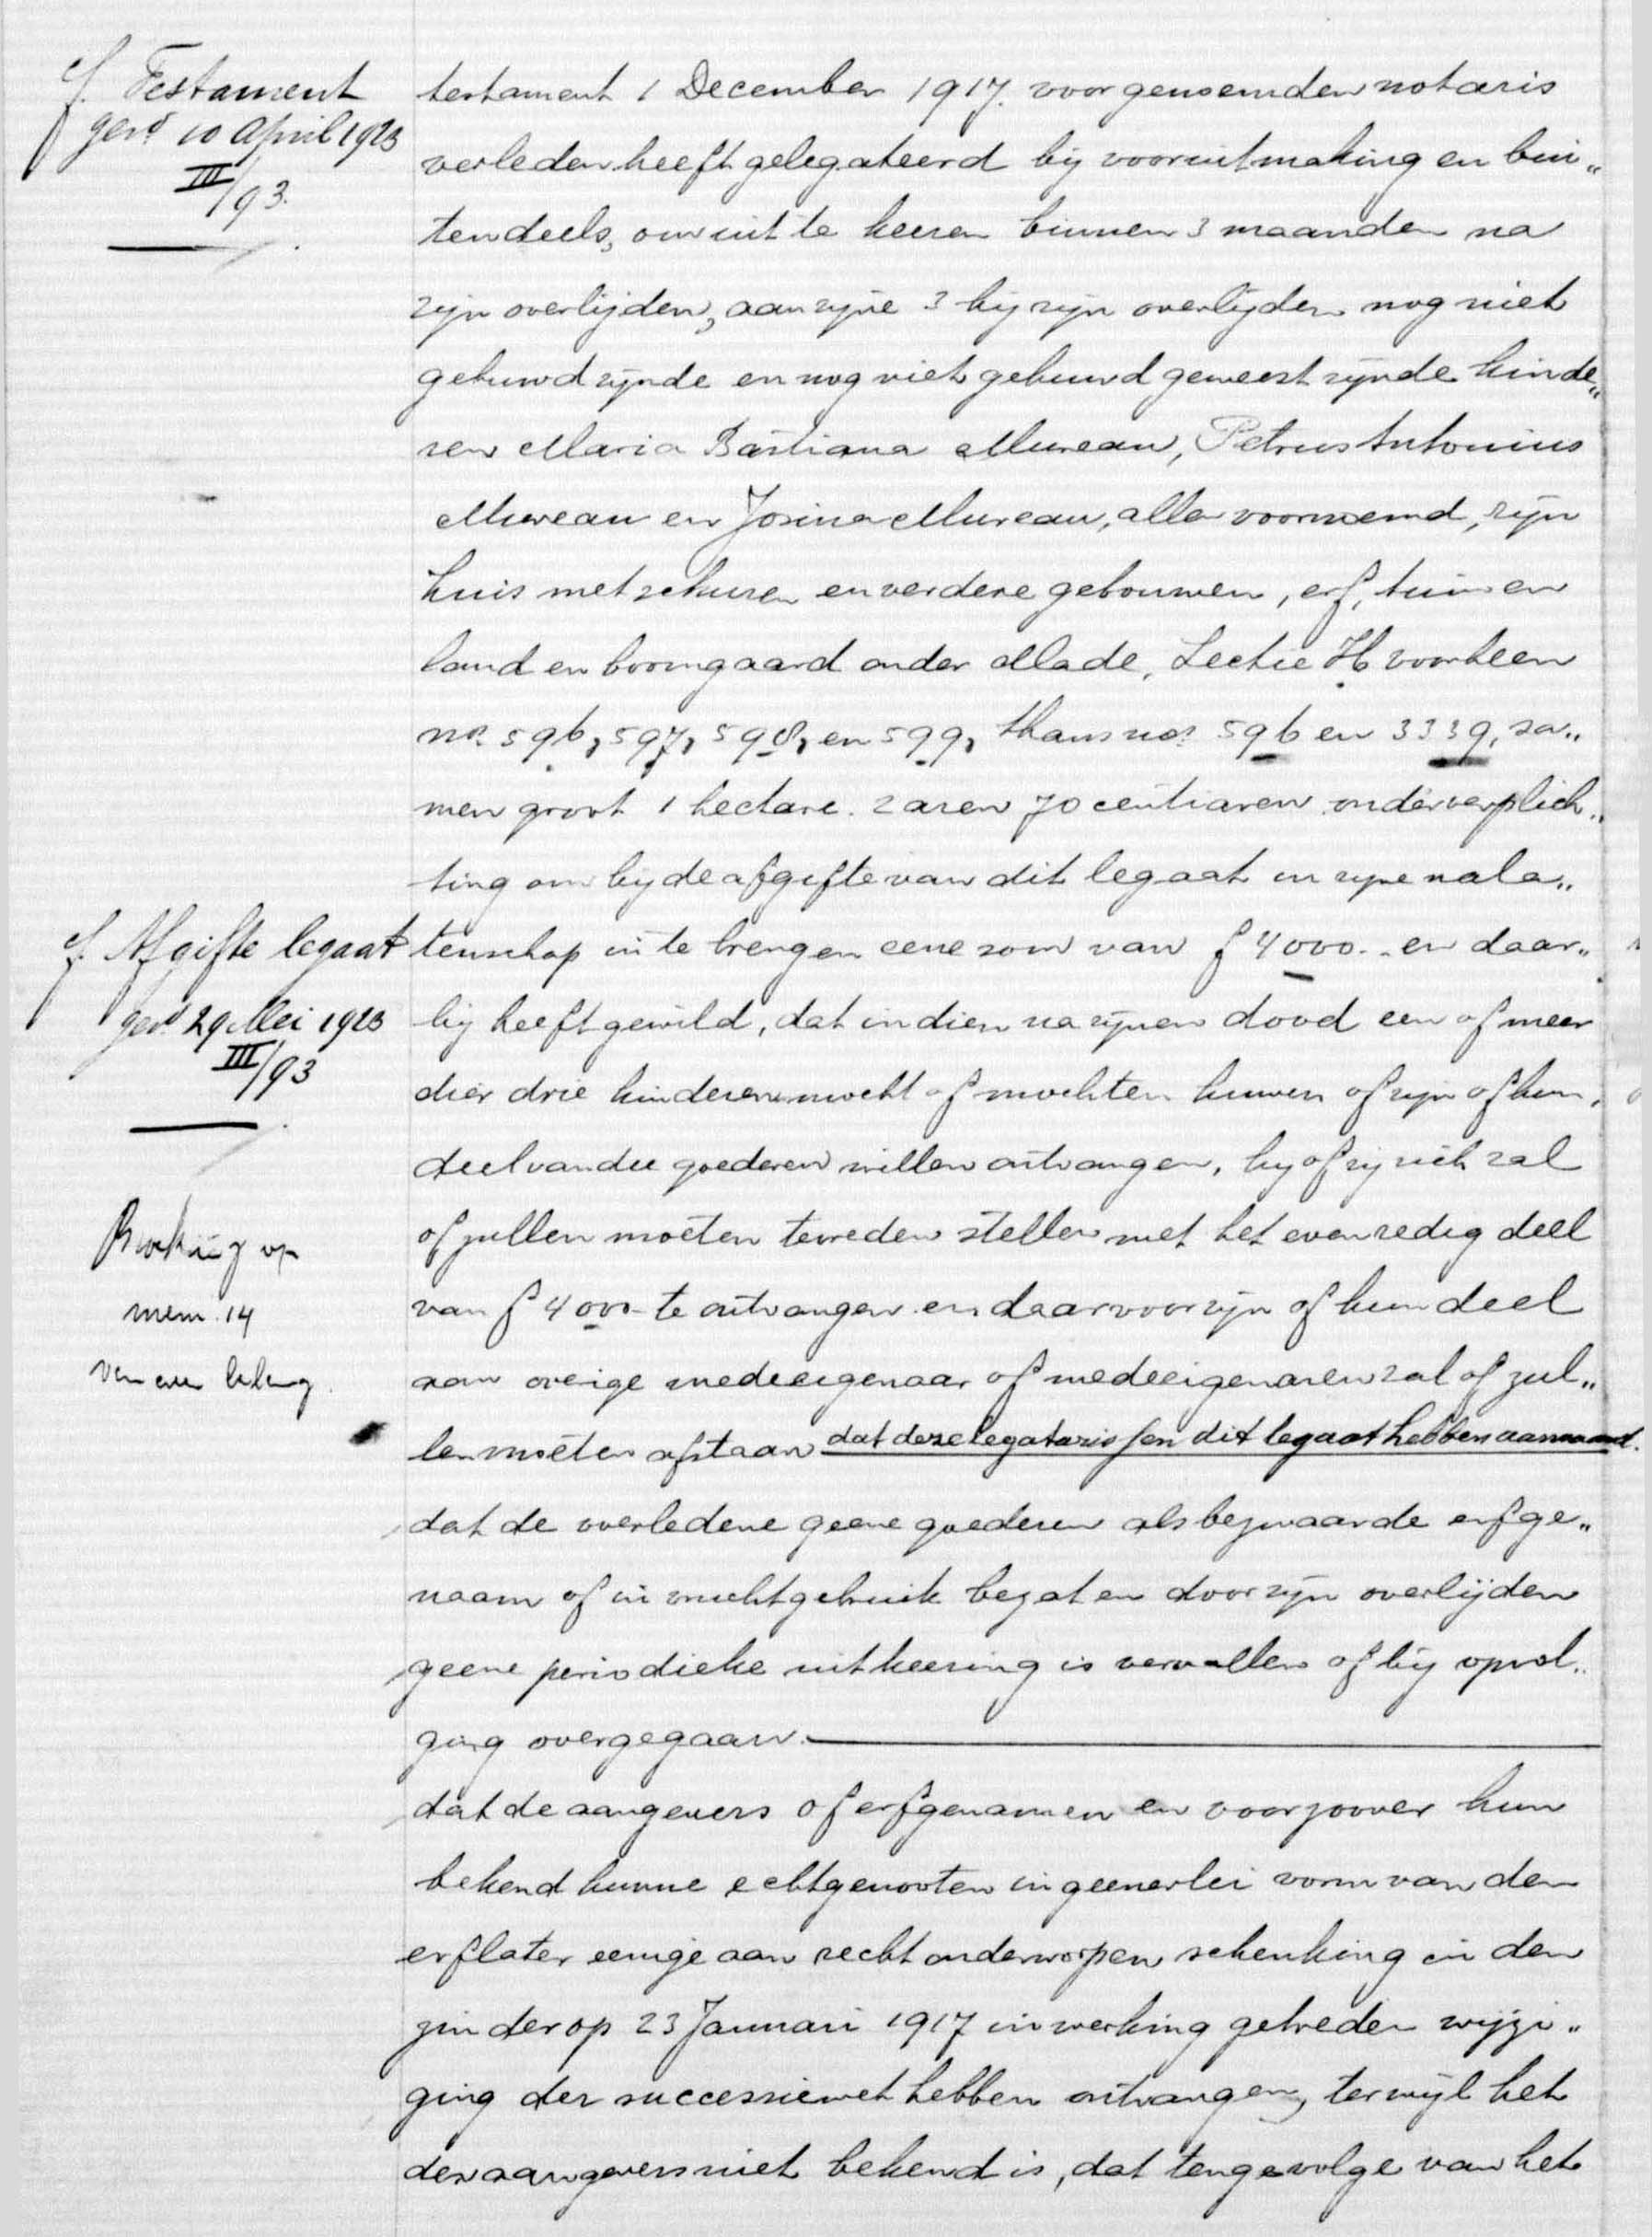 cf. Testament
ger.d 10 April 1923
III/93.
testament 1 December 1917. voor genoemden notaris
verleden heeft gelegateerd bij vooruitmaking en bui„
tendeels, om uit te keeren binnen 3 maanden na
zijn overlijden, aan zijne 3 bij zijn overlijden nog niet
gehuwd zijnde en nog niet gehuwd geweest zijnde kinde„
ren Maria Bastiana Mureau, Petrus Antonius
Mureau en Josina Mureau, allen voornoemd, zijn
huis met schuren en verdere gebouwen, erf, tuin en
land en boomgaard onder Made, Sectie H voorheen
nos. 596, 597, 598, en 599, thans nos. 596 en 3339, sa„
men groot 1 hectare. 2 aren 70 centiaren onder verplich„
ting om bij de afgifte van dit legaat in zijne nala„
cf. Afgifte legaat
ger.d 29 Mei 1923
III/93
tenschap in te brengen eene som van f 4000.- en daar„
bij heeft gewild, dat indien na zijnen dood een of meer
dier drie kinderen mocht of mochten huwen of zijn of hun
deel van die goederen willen ontvangen, hij of zij zich zal
of zullen moeten tevreden stellen met het evenredig deel
van f 4000- te ontvangen en daarvoor zijn of hun deel
aan overige medeeigenaar of medeeigenaren zal of zul„
len moeten afstaan dat deze legatarissen dit legaat hebben aanvaard.
mem. 14
dat de overledene geene goederen als bezwaarde erfge„
naam of in vruchtgebruik bezat en door zijn overlijden
geene periodieke uitkeering is vervallen of bij opvol„
ging overgegaan.
dat de aangevers of erfgenamen en voor zoover hun
bekend hunne echtgenooten in geenerlei vorm van den
erflater eenige aan recht onderworpen schenking in den
zin der op 23 Januari 1917 in werking getreden wijzi„
ging der successiewet hebben ontvangen, terwijl het
den aangevers niet bekend is, dat tengevolge van het